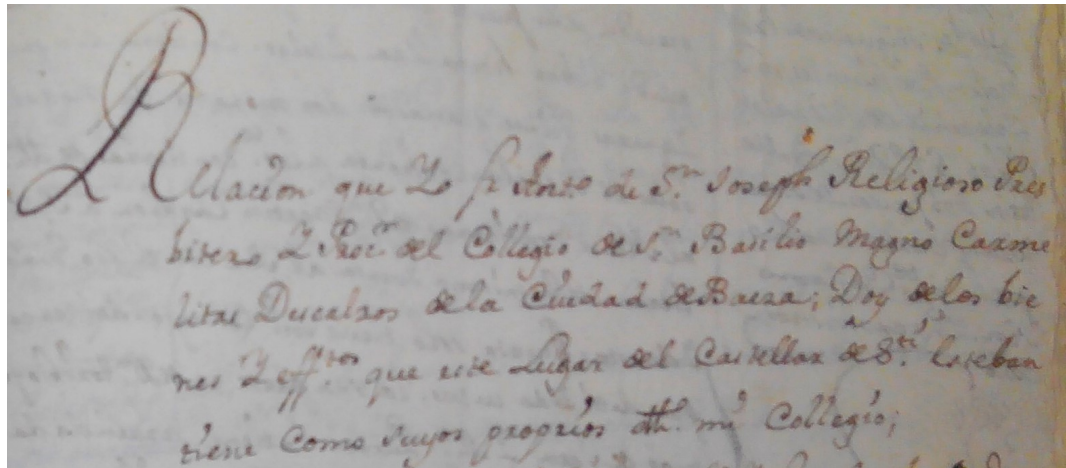 Relacion que Yo fr Anto de Sn. Joseph Religioso Pres
bitero Y Procr del Collegio de Sn. Basilio Magno Carme
litas Descalzos de la Ciudad de Baeza; Doy de los bie
nes Y efftos que este Lugar del Castellar de Stî. Esteban
tiene Como suyos proprios dho. mi Collegio;